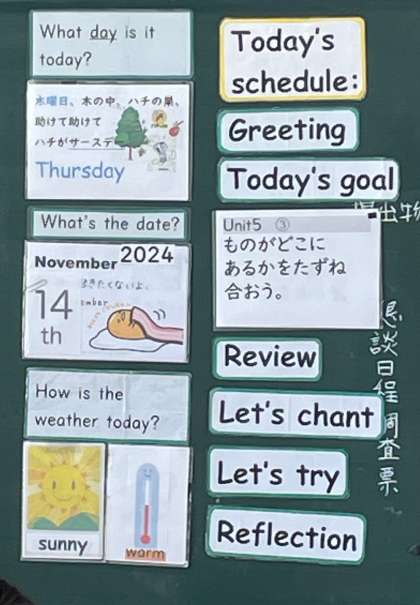 What day is it
today?
水曜日、木の中、ハチの巣、
助けて助けて
ハチがサースデー
Thursday
What's the date?
November 2024
14
th
How is the
weather today?
sunny
warm
Today's
schedule:
Greeting
Today's goal
Unit5 ③
ものがどこに
あるかをたずね
合おう。
Review
Let's chant
Let's try
Reflection
提出物
懇談日程調査票